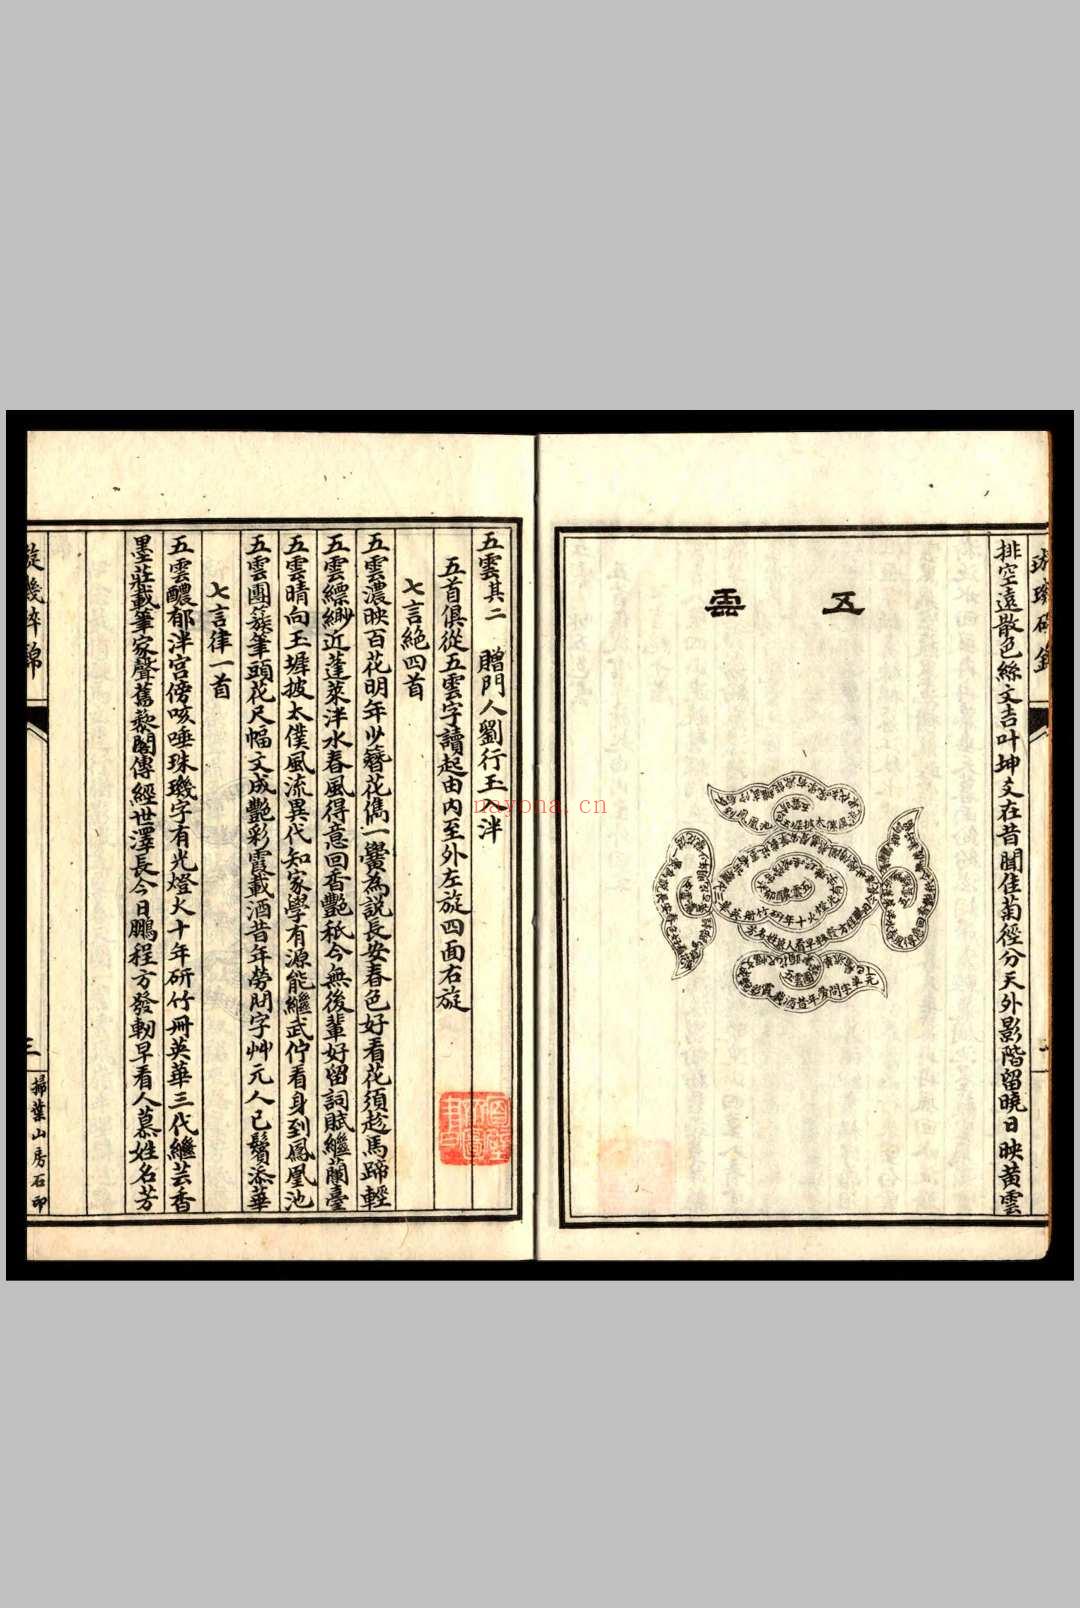 排空遠散色絲文吉叶坤爻在昔聞佳菊徑分天外影階留曉日映黃雲
五雲
五雲其二 贈門人劉行玉泮
五首俱從五雲字讀起由內至外左旋四面右旋
七言絕四首
五雲濃映百花明年少簪花儁一黌為說長安春色好看花須趁馬蹄輕
五雲縹緲近蓬萊泮水春風得意回香艷秪今無後輩好留詞賦繼蘭臺
五雲晴向玉墀披太僕風流異代知家學有源能繼武佇看身到鳳凰池
五雲團簇筆頭花尺幅文成艷彩霞載酒昔年勞問字艸元人已鬢添華
七言律一首
五雲醲郁泮宮傍咳唾珠璣字有光燈火十年研竹冊英華三代繼芸香
墨莊載筆家聲舊藜閣傳經世澤長今日鵬程方發軔早看人慕姓名芳
璇璣碎錦
三
掃葉山房石印
nayona.cn